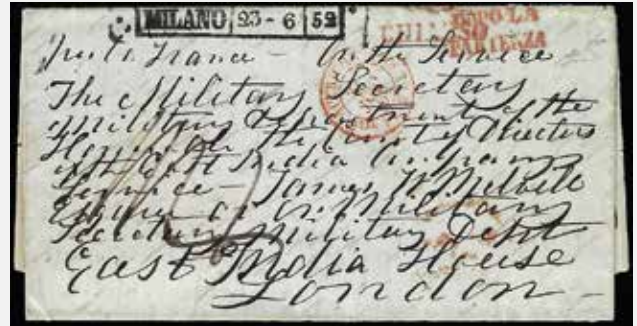 MILANO 23-6 52
DOPO LA
PARTENZA
France - On the Service
The Military Secretary
Military Department of the
Honorable the Court of Directors
of the East India Company
Service - James Melvill
Esquire or Military
Secretary Military Dept
East India House
London